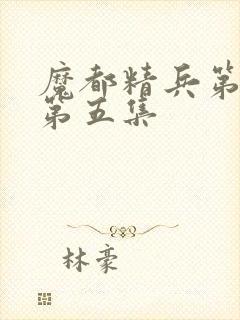 魔都精兵第
第五集
林豪